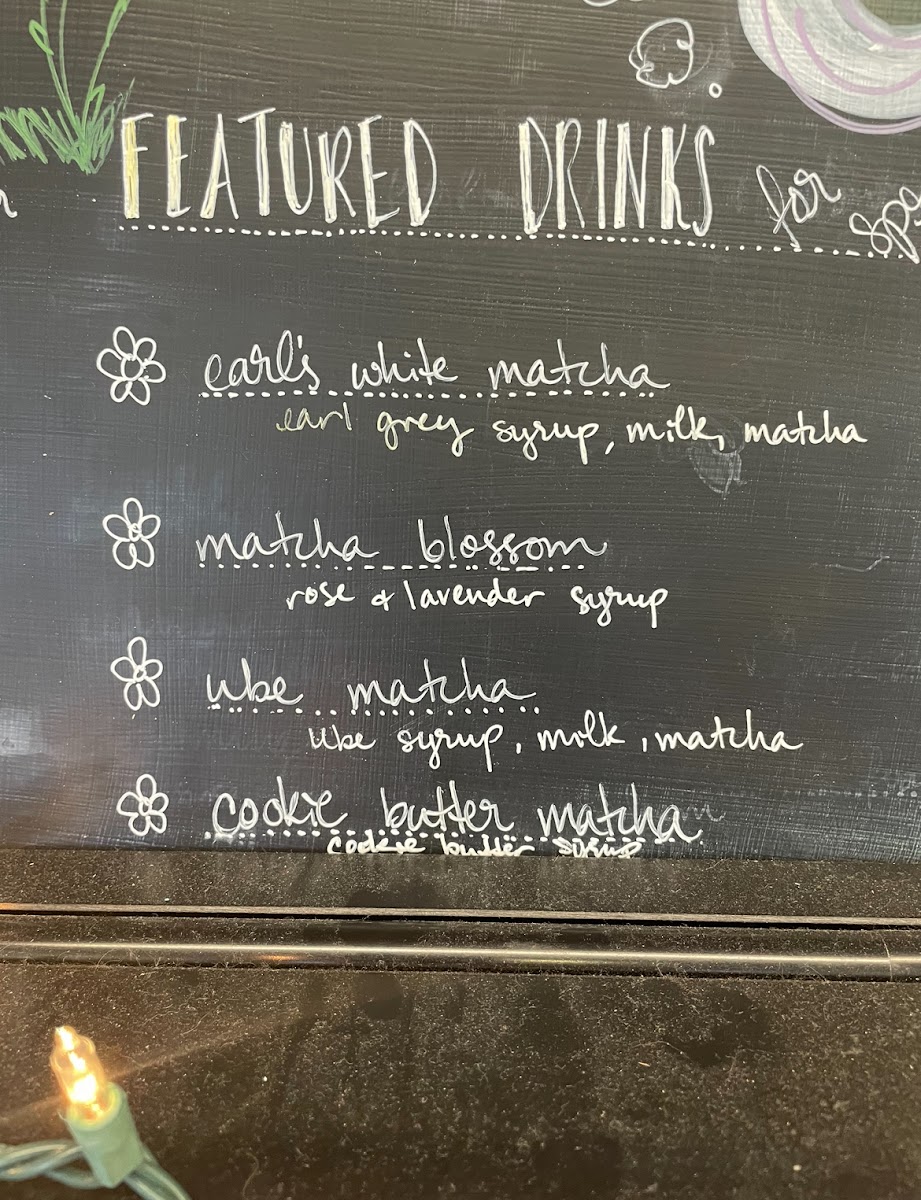 FEATURED DRINKS for
earl's white matcha
earl grey syrup, milk, matcha
matcha blossom
rose & lavender syrup
ube matcha
ube syrup, milk, matcha
cookie butter matcha
cookie butter syrup